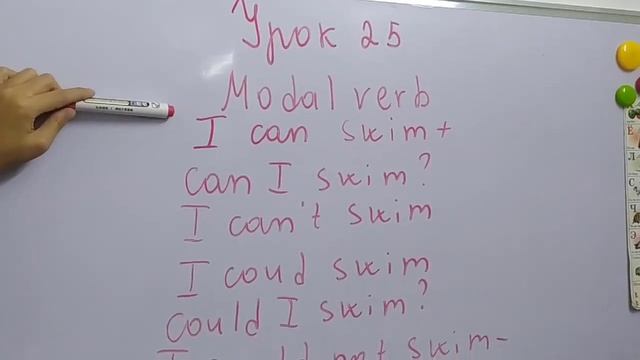 Урок 25
Modal verb
I can swim +
can I swim?
I can't swim
I coud swim
Could I swim?
I could not swim -